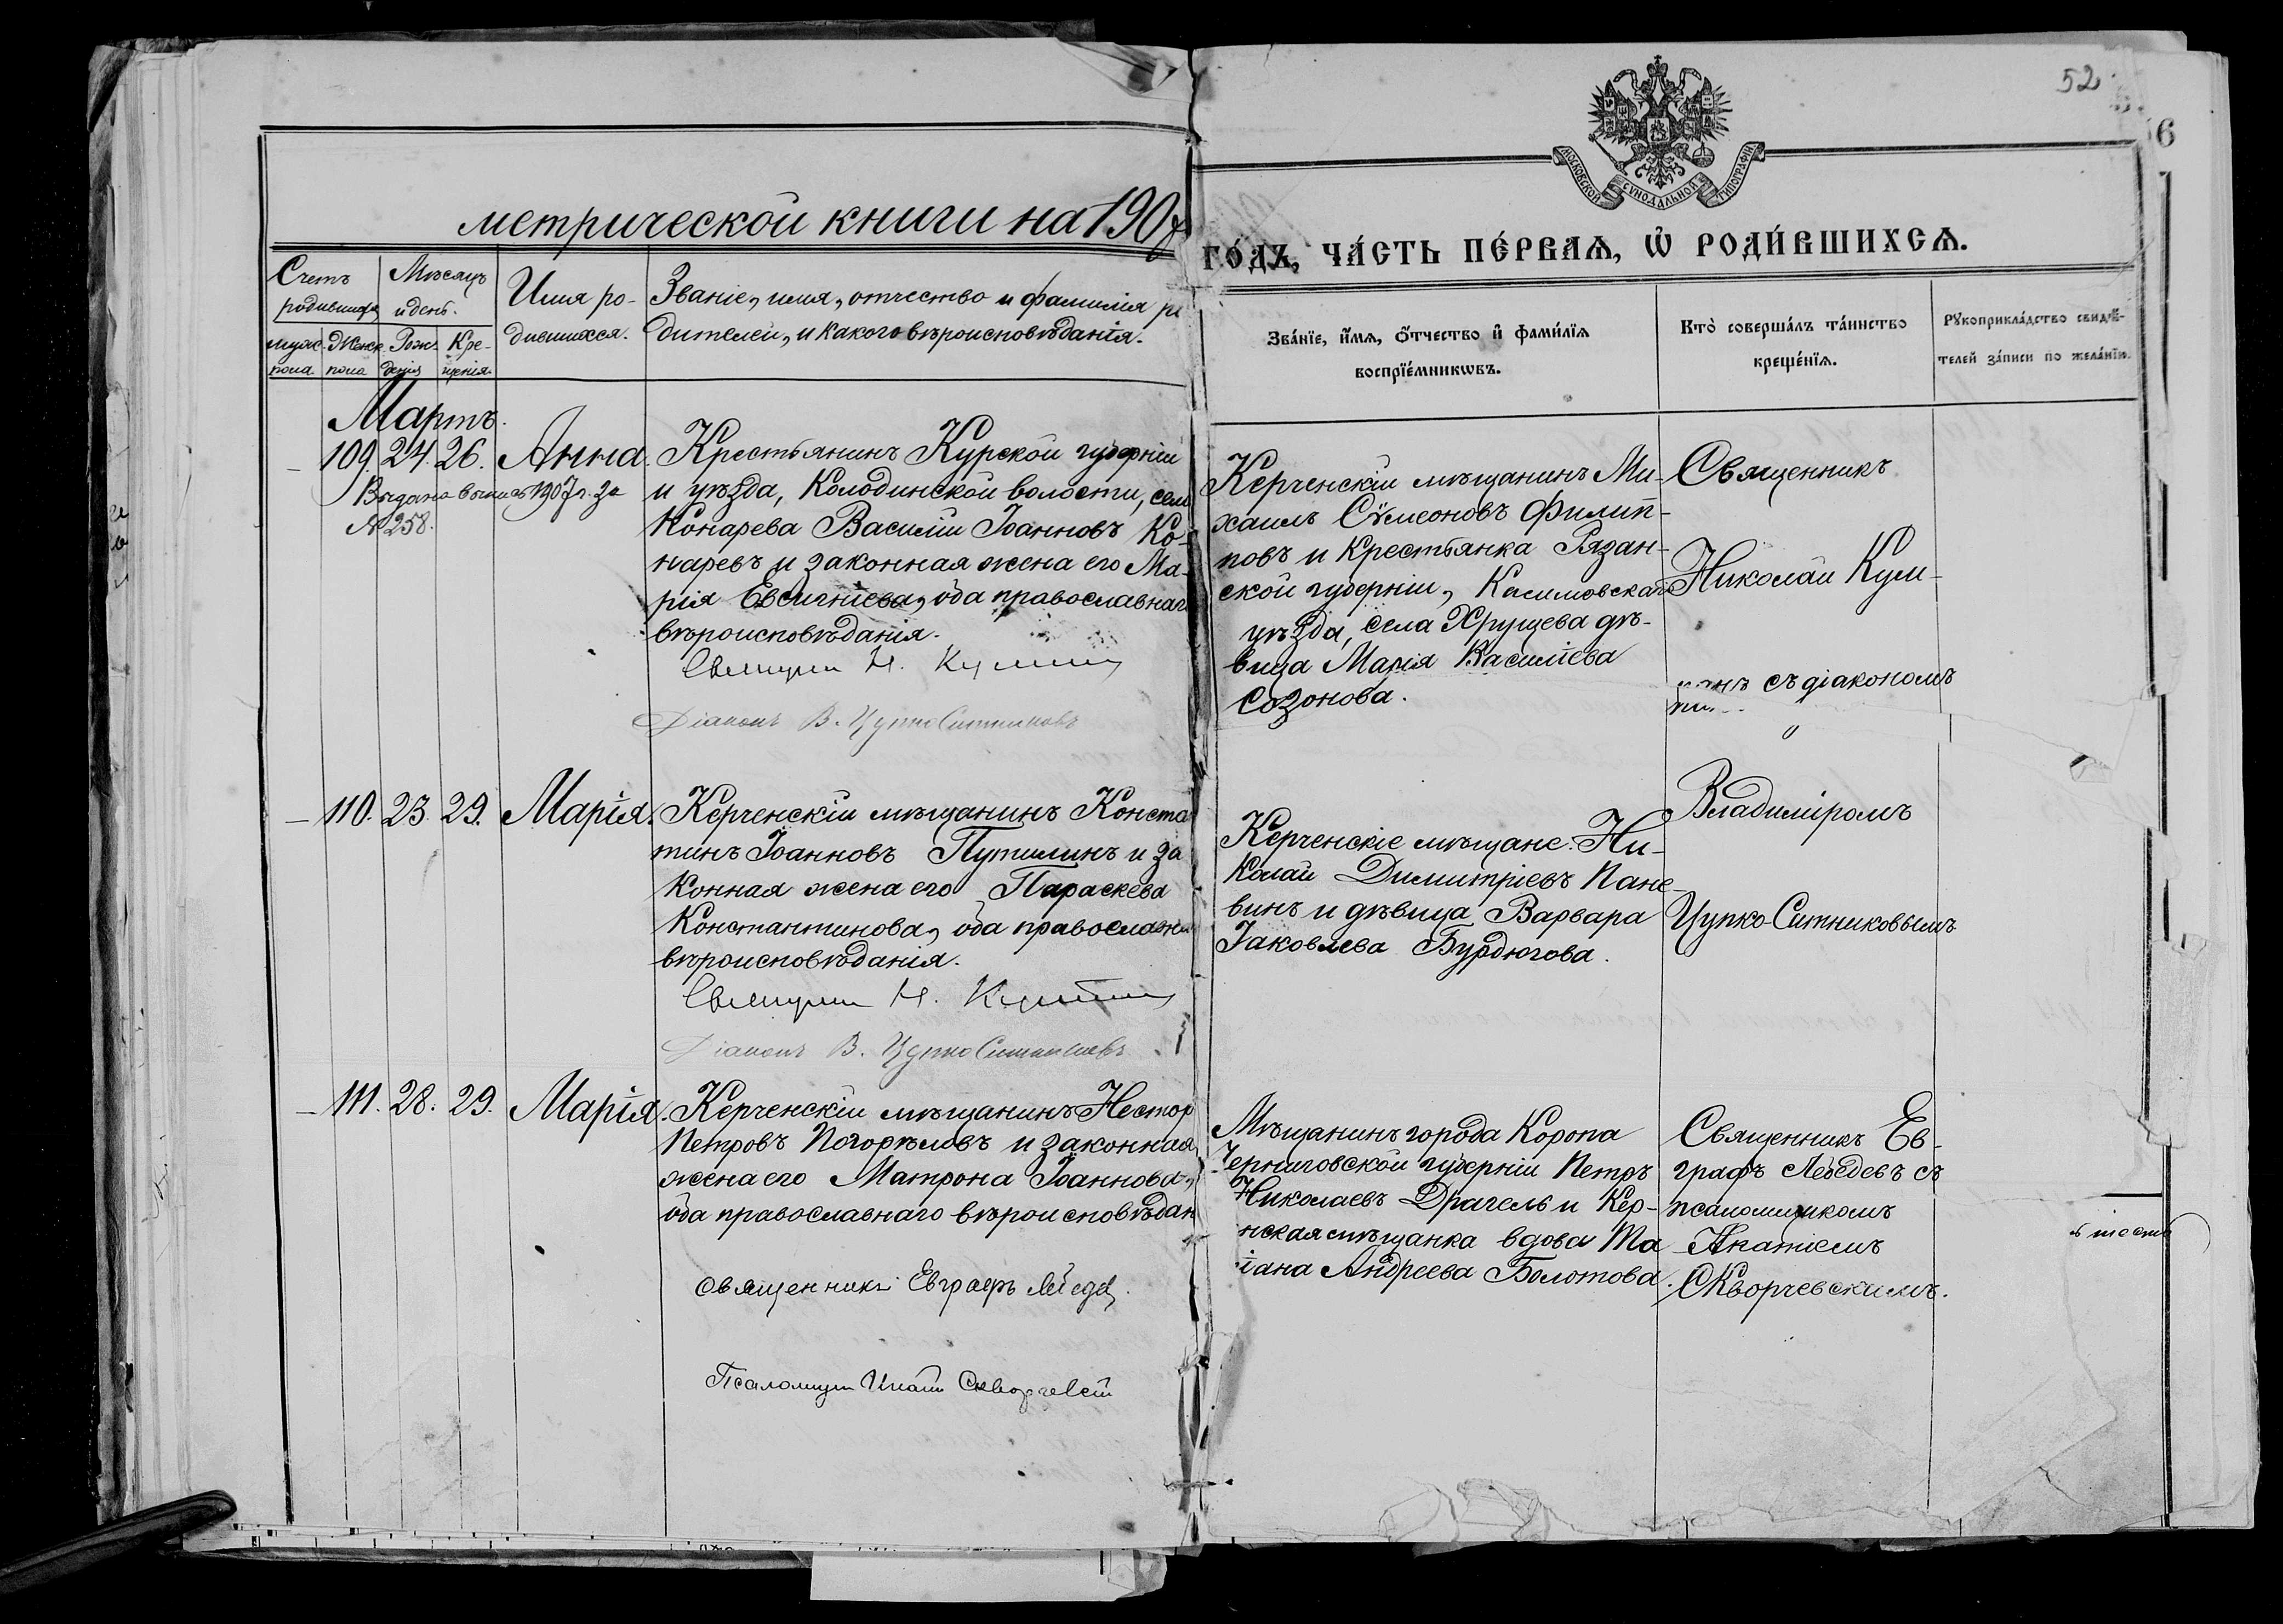 52
6
МОСКОВСКОЙ СѴНОДАЛЬНОЙ ТИПОГРАФІИ
метрической книги на 1907
го́дъ, ча́сть пе́рваѧ, ѡ҆ роди́вшихсѧ.
Счетъ
родившихся
муж.
пола
Женск.
пола
Мѣсяцъ
и день.
Рож-
денія
Кре-
щенія.
Имя ро-
дившихся.
Званіе, имя, отчество и фамилія ро
дителей, и какого вѣроисповѣданія.
Зва́нїе, и҆́мѧ, ѻ҆́тчество и҆ фами́лїѧ
воспрїе́мникѡвъ.
Кто̀ соверша́лъ та́инство
креще́нїѧ.
Рꙋкоприкла́дство свидѣ́-
телей за́писи по жела́нїю.
Мартъ.
109. 24. 26. Анна.
Выдана выпись 1907 г. за
№ 258.
Крестьянинъ Курской губерніи
и уѣзда, Колодинской волости, села
Конарева Василій Іоанновъ Ко-
наревъ и законная жена его Ма-
рія Евсигніева, оба православнаго
вѣроисповѣданія.
Священникъ Н. Кулинъ
Діаконъ В. Цупко Ситниковъ
Керченскій мѣщанинъ Ми-
хаилъ Сѵмеоновъ Филип-
повъ и крестьянка Рязан-
ской губерніи, Касимовскаго
уѣзда, села Хрущева дѣ-
вица Марія Василіева
Созонова.
Священникъ
Николай Кули-
съ діакономъ
Владиміромъ
Цупко Ситниковымъ
110. 23. 29. Марія.
Керченскій мѣщанинъ Конста
тинъ Іоанновъ Путилинъ и за
конная жена его Параскева
Константинова, оба православн
вѣроисповѣданія.
Священникъ Н. Кулинъ
Діаконъ В. Цупко Ситниковъ
Керченскіе мѣщане: Ни-
колай Димитріевъ Пане-
винъ и дѣвица Варвара
Іаковлева Бурдюгова.
111. 28. 29. Марія.
Керченскій мѣщанинъ Нестор
Петровъ Погорѣловъ и законная
жена его Матрона Іоаннова,
оба православнаго вѣроисповѣдан
Священникъ Евграфъ Лебедев
Псаломщик Скворчевскій
Мѣщанинъ города Коропа
Черниговской губерніи Петръ
Николаевъ Драгель и Кер-
нская мѣщанка вдова Та
іана Андреева Болотова.
Священникъ Ев-
графъ Лебедевъ съ
псаломщикомъ
Скворчевскимъ.